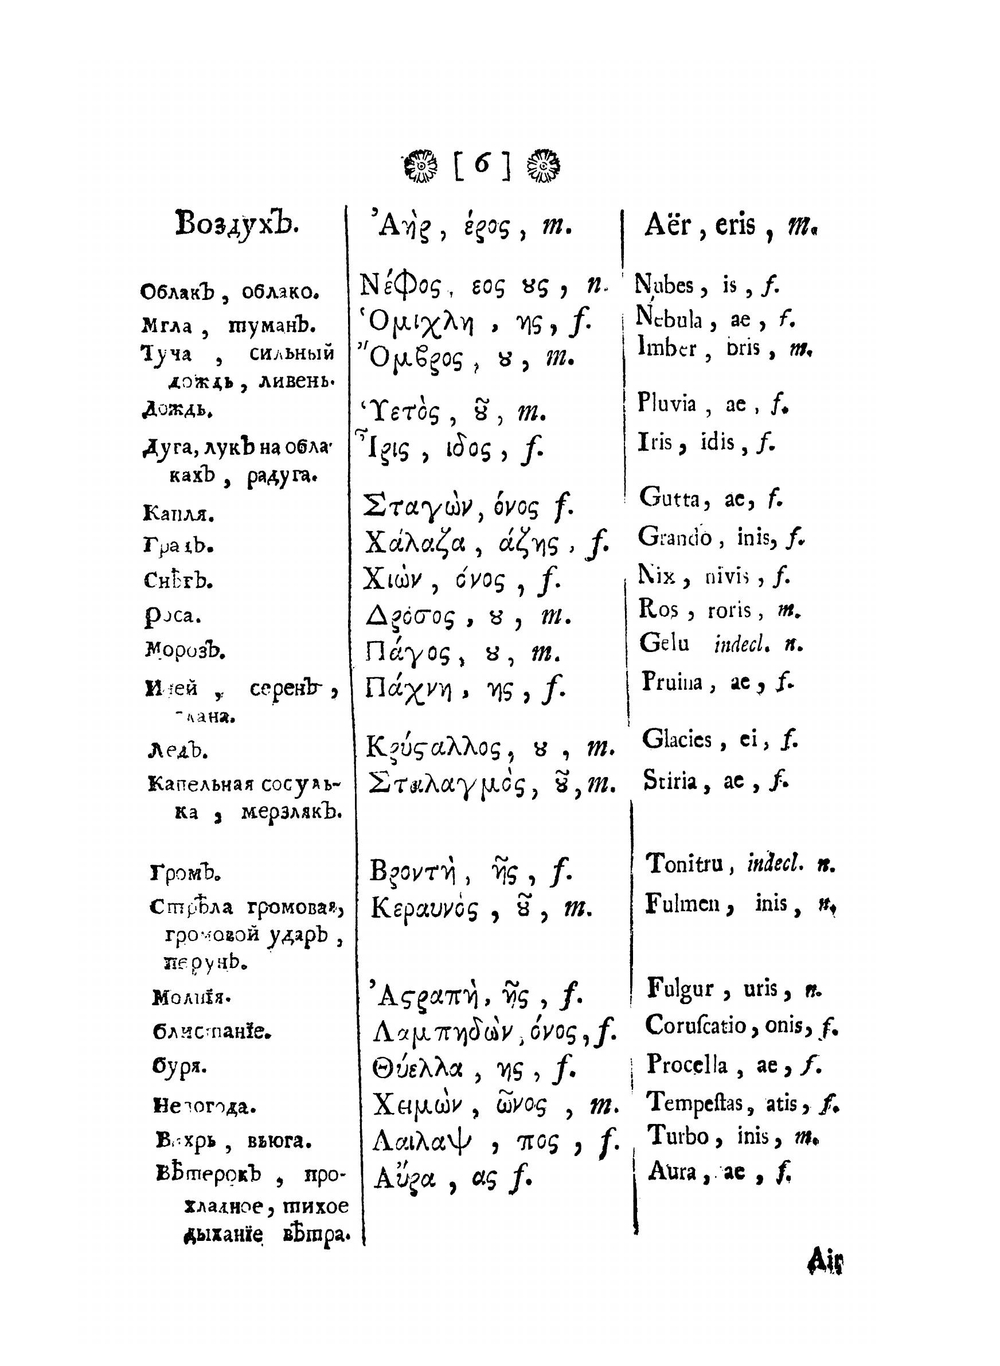 [ 6 ]
Воздухъ. Ἀὴρ, έρος, m. Aër, eris, m.
Облакъ, облако. Νέφος, εος ȣς, n. Nubes, is, f.
Мгла, туманъ. Ὁμιχλη, ης, f. Nebula, ae, f.
Туча, сильный Ὄμβρος, ȣ, m. Imber, bris, m.
дождь, ливень.
Дождь. Ὑετὸς, ȣ͂, m. Pluvia, ae, f.
Дуга, лукъ на обла- Ἶρις, ιδος, f. Iris, idis, f.
кахъ, радуга.
Капля. Σταγὼν, όνος f. Gutta, ae, f.
Градъ. Χάλαζα, άζης, f. Grando, inis, f.
Снѣгъ. Χιὼν, όνος, f. Nix, nivis, f.
Роса. Δρόσος, ȣ, m. Ros, roris, m.
Морозъ. Πάγος, ȣ, m. Gelu indecl. n.
Иней, серенъ, Πάχνη, ης, f. Pruina, ae, f.
Ледъ. Κρύϛαλλος, ȣ, m. Glacies, ei, f.
Капельная сосуль- Σταλαγμὸς, ȣ͂, m. Stiria, ae, f.
ка, мерзлякъ.
Громъ. Βροντὴ, ῆς, f. Tonitru, indecl. n.
Стрѣла громовая, Κεραυνὸς, ȣ͂, m. Fulmen, inis, n.
громовой ударъ,
перунъ.
Молнія. Ἀϛραπὴ, ῆς, f. Fulgur, uris, n.
блистаніе. Λαμπηδὼν, όνος, f. Coruſcatio, onis, f.
буря. Θύελλα, ης, f. Procella, ae, f.
Непогода. Χειμὼν, ῶνος, m. Tempeſtas, atis, f.
Вихрь, вьюга. Λαιλαψ, πος, f. Turbo, inis, m.
Вѣтерокъ, про- Αὔρα, ας f. Aura, ae, f.
хладное, тихое
дыханіе вѣтра.
Air